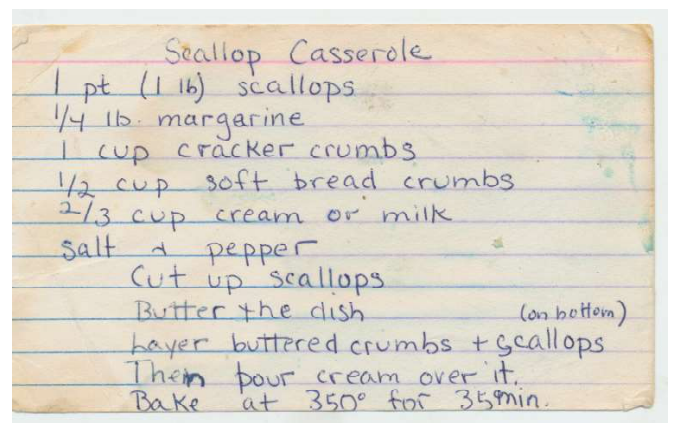 Scallop Casserole
1 pt (1 lb) scallops
1/4 lb. margarine
1 cup cracker crumbs
1/2 cup soft bread crumbs
2/3 cup cream or milk
salt & pepper
Cut up scallops
Butter the dish (on bottom)
Layer buttered crumbs + scallops
Then pour cream over it.
Bake at 350° for 35 min.